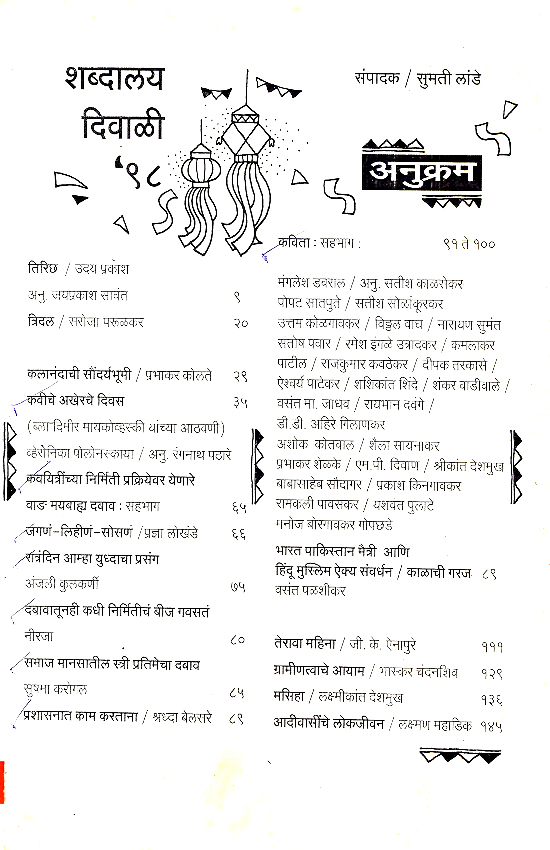 शब्दालय
दिवाळी
‘९८
संपादक / सुमती लांडे
अनुक्रम
तिरिछ / उदय प्रकाश
अनु. जयप्रकाश सावंत ९
त्रिदल / सरोजा परूळकर २०
कलानंदाची सौंदर्यभूमी / प्रभाकर कोलते २९
कवीचे अखेरचे दिवस ३५
(व्लादिमीर मायकोव्हस्की यांच्या आठवणी)
व्हेरोनिका पोलोनस्काया / अनु. रंगनाथ पठारे
कवयित्रींच्या निर्मिती प्रक्रियेवर येणारे
वाङ मयबाह्य दबाव : सहभाग ६५
जगणं-लिहीणं-सोसणं / प्रज्ञा लोखंडे ६६
रात्रंदिन आम्हा युध्दाचा प्रसंग
अंजली कुलकर्णी ७५
दबावातूनही कधी निर्मितीचं बीज गवसतं
नीरजा ८०
समाज मानसातील स्त्री प्रतिमेचा दबाव
सुष्मा करोगल ८५
प्रशासनात काम करताना / श्रध्दा बेलसरे ८९
कविता : सहभाग : ९१ ते १००
मंगलेश डबराल / अनु. सतीश काळसेकर
पोपट सातपुते / सतीश सोळांकूरकर
उत्तम कोळगावकर / विठ्ठल वाघ / नारायण सुमंत
संतोष पवार / रमेश इंगळे उत्रादकर / कमलाकर
पाटील / राजकुमार कवठेकर / दीपक तरकासे /
ऐश्वर्य पाटेकर / शशिकांत शिंदे / शंकर वाडीवाले /
वसंत मा. जाधव / रायभान दवंगे /
डी.डी. अहिरे गिलाणकर
अशोक कोतवाल / शैला सायनाकर
प्रभाकर शेळके / एम.पी. दिवाण / श्रीकांत देशमुख
बाबासाहेब सौदागर / प्रकाश किनगावकर
रामकली पावसकर / यशवंत पुलाटे
मनोज बोरगावकर गोपछडे
भारत पाकिस्तान मैत्री आणि
हिंदू मुस्लिम ऐक्य संवर्धन / काळाची गरज ८९
वसंत पळशीकर
तेरावा महिना / जी. के. ऐनापुरे १११
ग्रामीणत्वाचे आयाम / भास्कर चंदनशिव १२९
मसिहा / लक्ष्मीकांत देशमुख १३६
आदीवासींचे लोकजीवन / लक्ष्मण महाडिक १४५